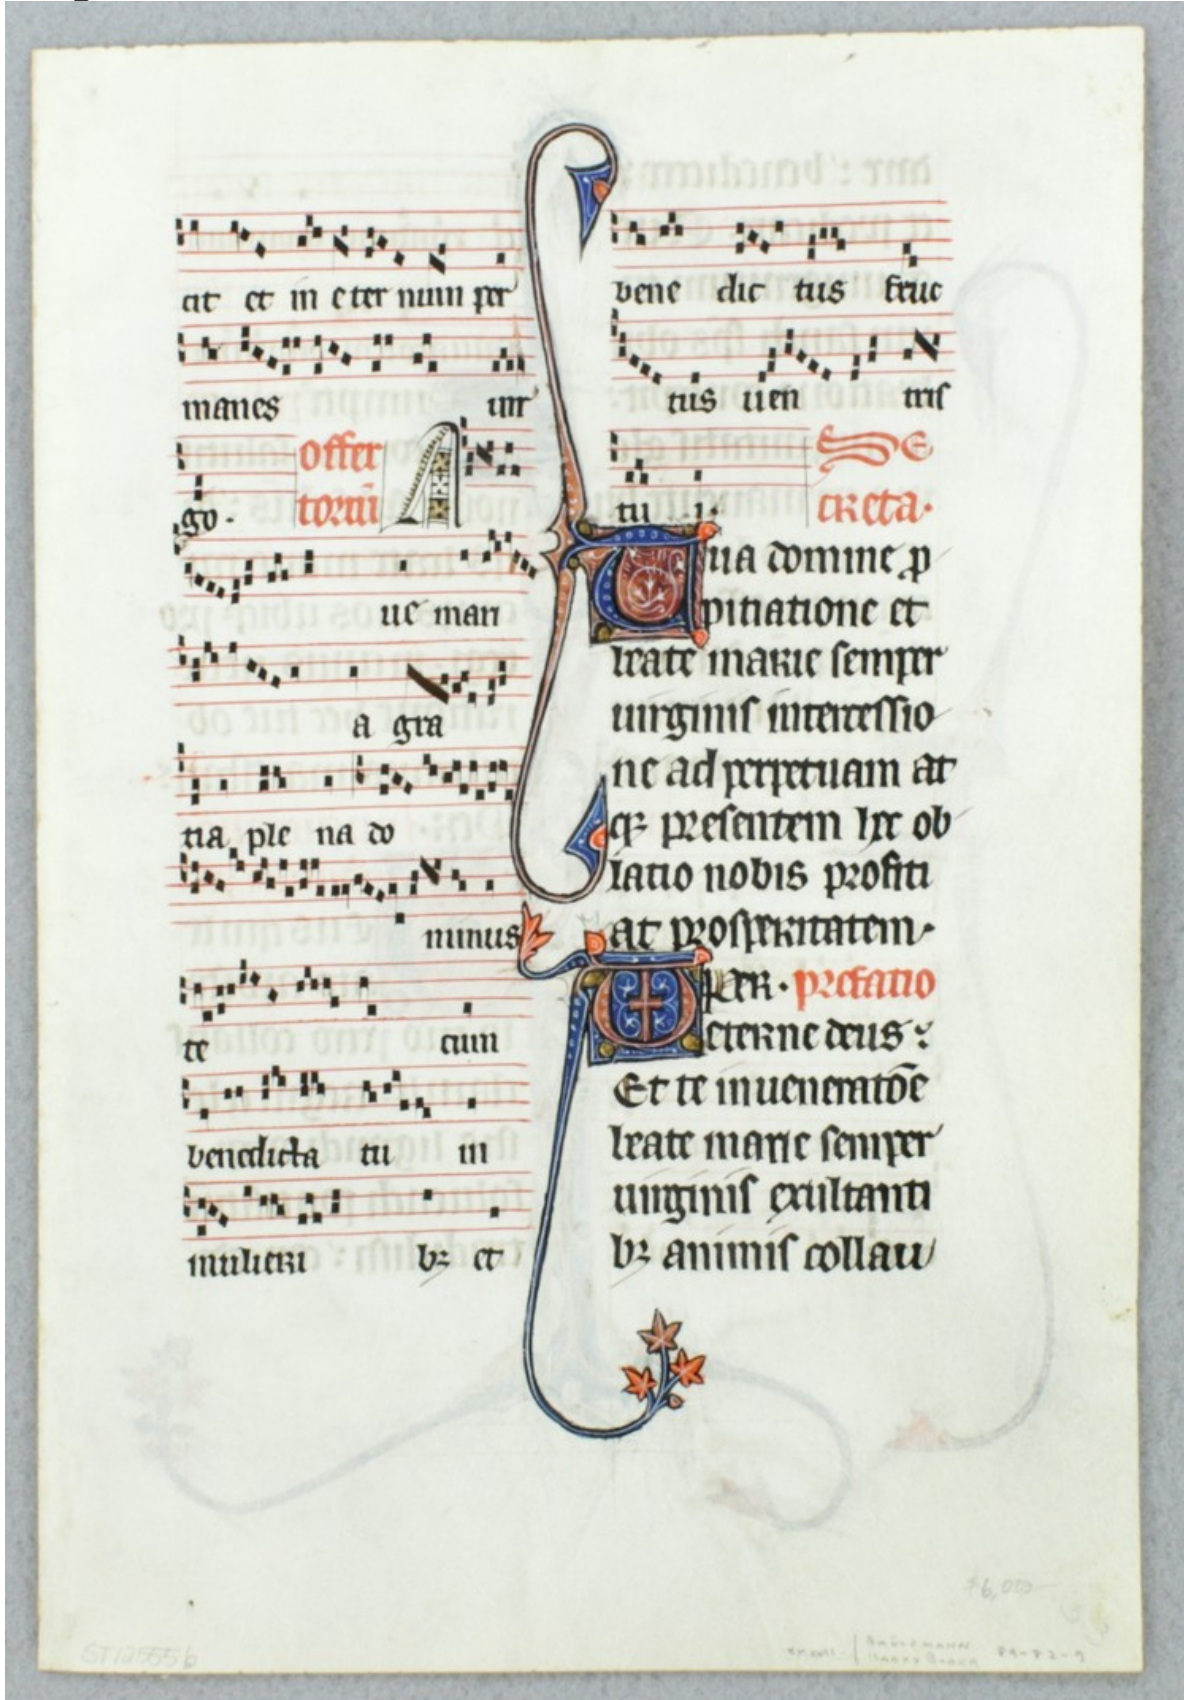 cit et in eter num per
manes uir
offer
go. toriū A
ue mari
a gra
tia ple na do
minus
te cum
benedicta tu in
mulieri bꝫ et
bene dic tus fruc
tus uen tris
tu i. Se
creta.
Tua domine ꝓ
pitiatione et
beate marie semper
uirginis intercessio
ne ad perpetuam at
qꝫ presentem hec ob
latio nobis profici
at prosperitatem.
per. prefatio
VD eterne deus:
Et te in ueneratōe
beate marie semper
uirginis exultanti
bꝫ animis collau
ST12555b
$6,000